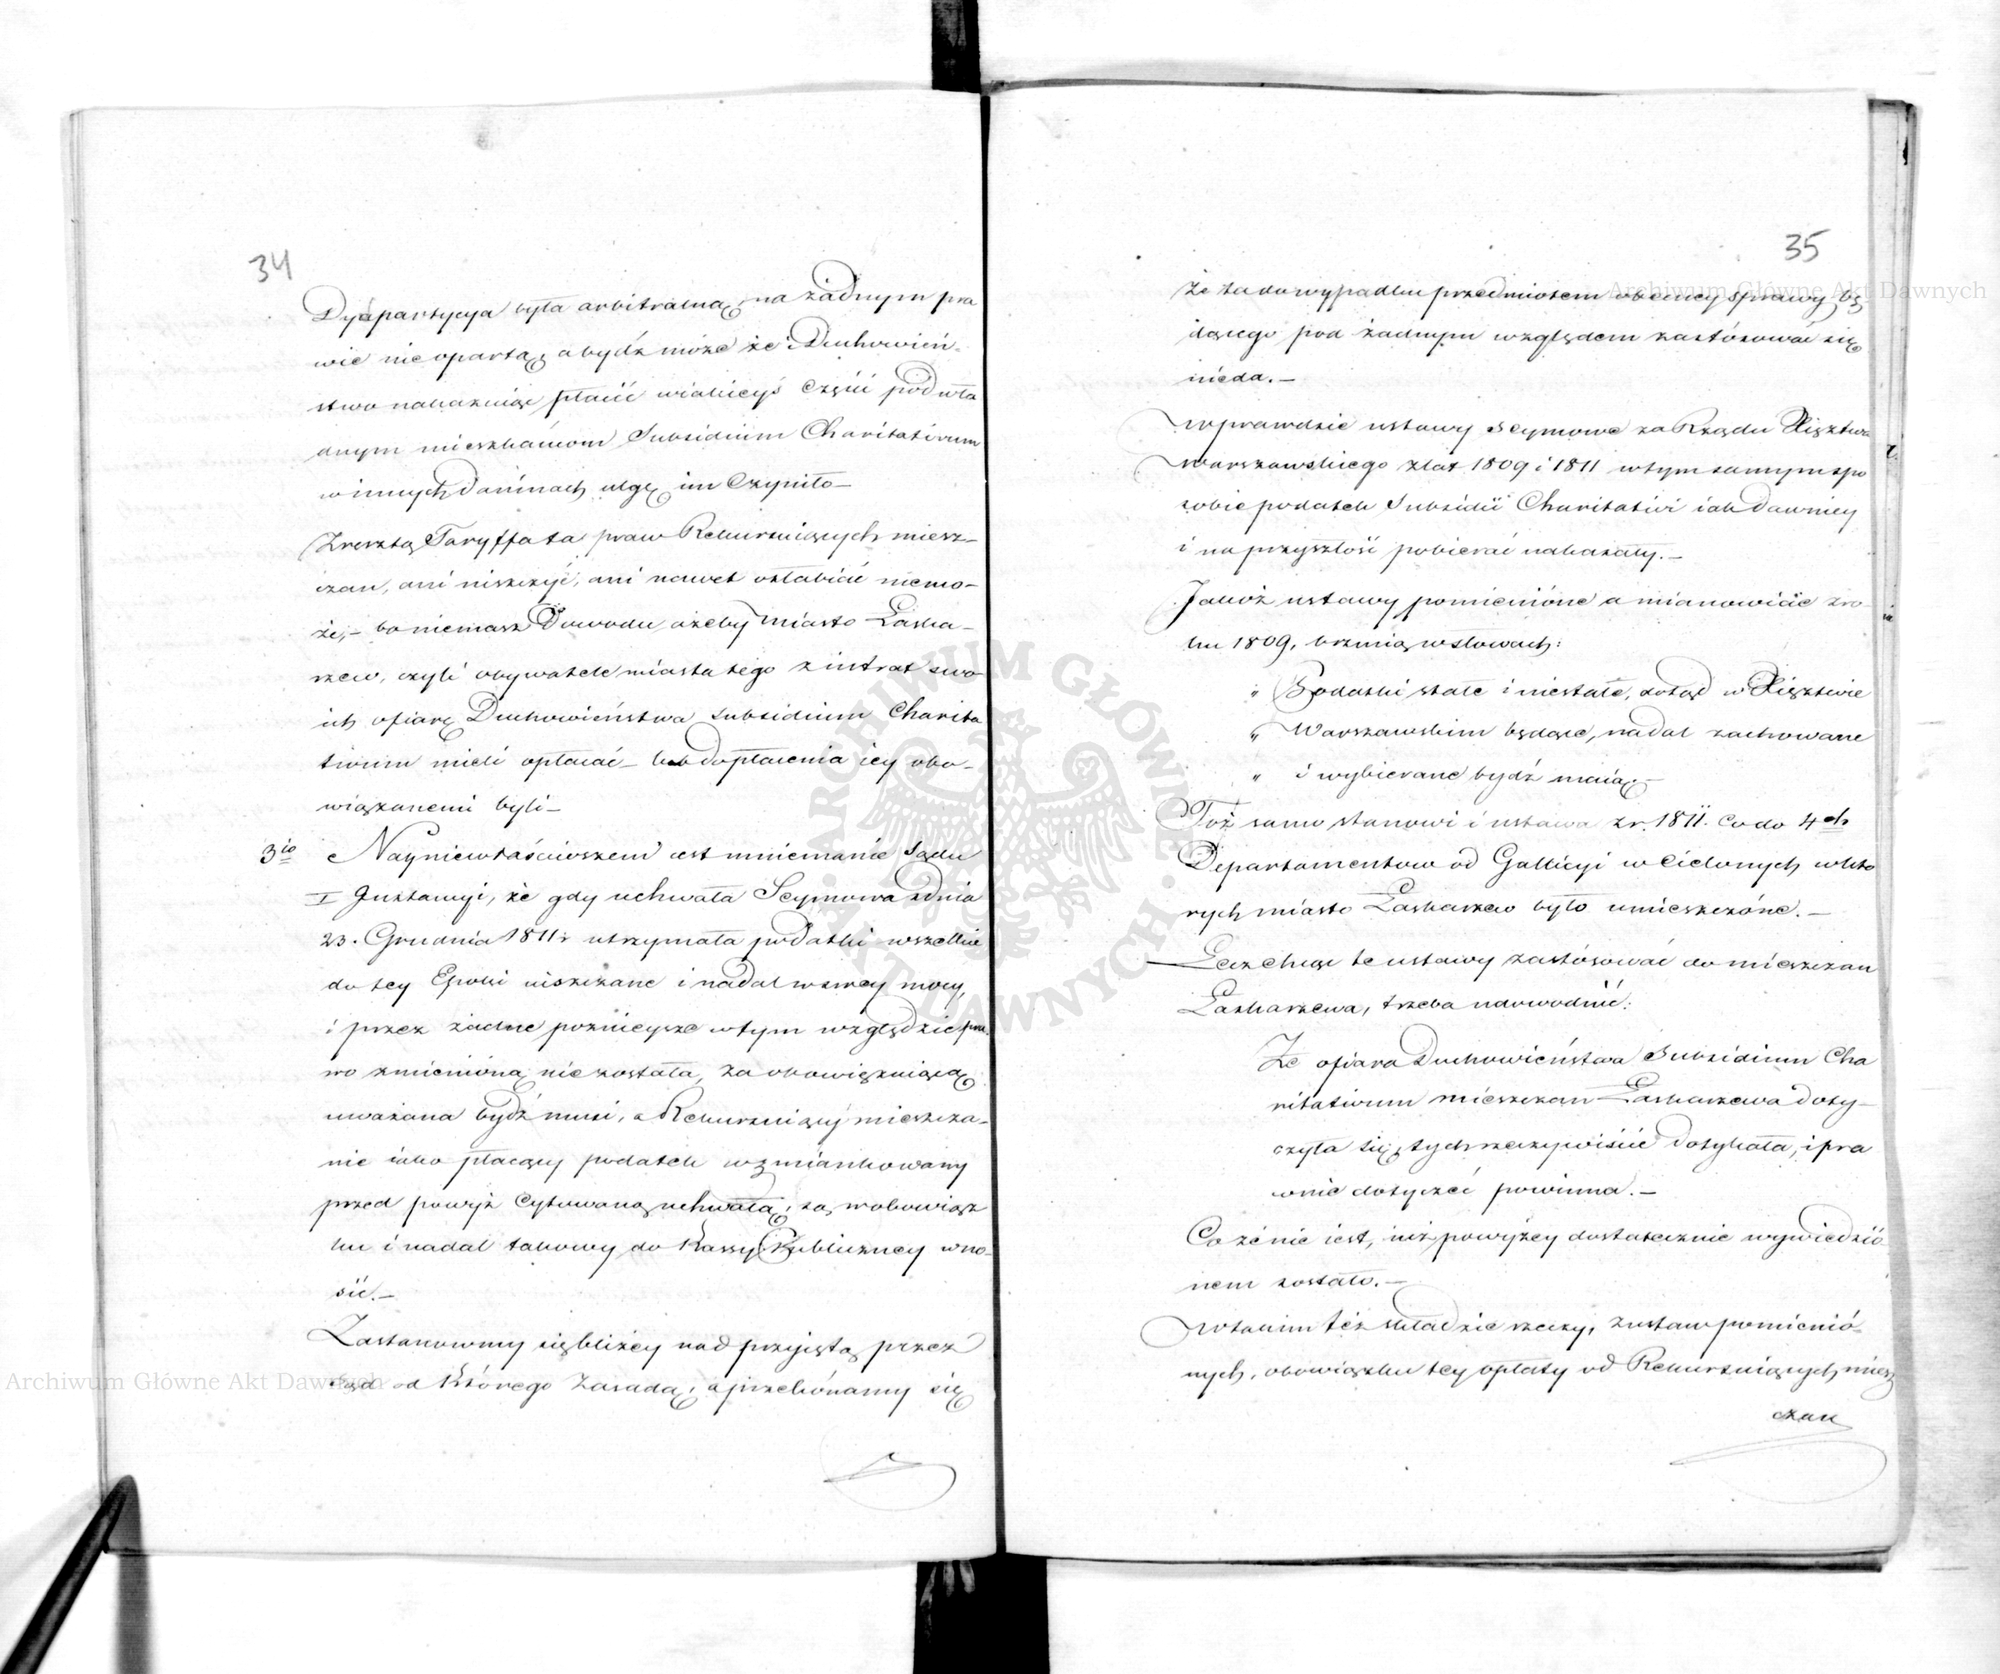 34
Dyspartycya była arbitralną, na żadnym pra
wie nie opartą, a bydź może że i Duchowień-
stwo nakazuiąc płacić iakieyś części podwła
dnym mieszkańcom Subsidium Charitativum
w innych Daninach ulgę im Czyniło —
Zresztą Taryffa ta praw Rekurruiących miesz-
czan, ani niszczyć, ani nawet osłabiać niemo-
że, — bo niemasz Dowodu, ażeby miasto Łaska-
rzew, czyli obywatele miasta tego z intrat swo
ich ofiarę Duchowieństwa Subsidium Charita
tivum mieli opłacać — lub do płacenia iey obo-
wiązanemi byli —
3io Nayniewłaściwszem iest mniemanie Sądu
I Instancyi, że gdy uchwała Seymowa z dnia
23. Grudnia 1811 r. utrzymała podatki wszelkie
do tey Epoki uiszczane i nadal w swey mocy,
i przez żadne poźnieysze w tym względzie pra
wo zmienioną nie została, za obowięzuiącą
uważana bydź musi, a Rekurruiący mieszcza-
nie iako płacący podatek wzmiankowany
przed powyż Cytowaną uchwałą, są w obowiąz
ku i nadal takowy do Kassy Publiczney wno-
sić. —
Zastanowmy się bliżey nad przyiętą przez
Sąd od którego Zasadą, a przekónamy się
35
że ta do wypadku przedmiotem obecney sprawy bę
dącego pod żadnym względem zastósować się
nieda. —
Wprawdzie ustawy Seymowe za Rządu Xięztwa
Warszawskiego z lat 1809 i 1811 w tym samym spo
sobie podatek Subsidii Charitativi iak Dawniey
i na przyszłość pobierać nakazały. —
Jakóż ustawy pomienióne a mianowicie z ro-
ku 1809, brzmią w słowach:
" Podatki stałe i niestałe, dotąd w Xięztwie
" Warszawskim będące, nadal zachowane
" i wybierane bydź maią. —
Toż samo stanowi i ustawa z r. 1811. Co do 4ch
Departamentow od Gallicyi wcielonych w któ
rych miasto Łaskarzew było umieszczóne. —
Lecz chcąc te ustawy zastósować do mieszczan
Łaskarzewa, trzeba udowodnić:
Że ofiara Duchowieństwa Subsidium Cha
ritativum mieszczan Łaskarzewa doty-
czyła się, tych rzeczywiście dotykała, i pra
wnie dotyczéć powinna. —
Co że nie iest, iuż powyżey dostatecznie wywiedzió-
nem zostało. —
W takim też składzie rzeczy, z ustaw pomienió-
nych, obowiązku tey opłaty od Rekurruiących miesz
czan